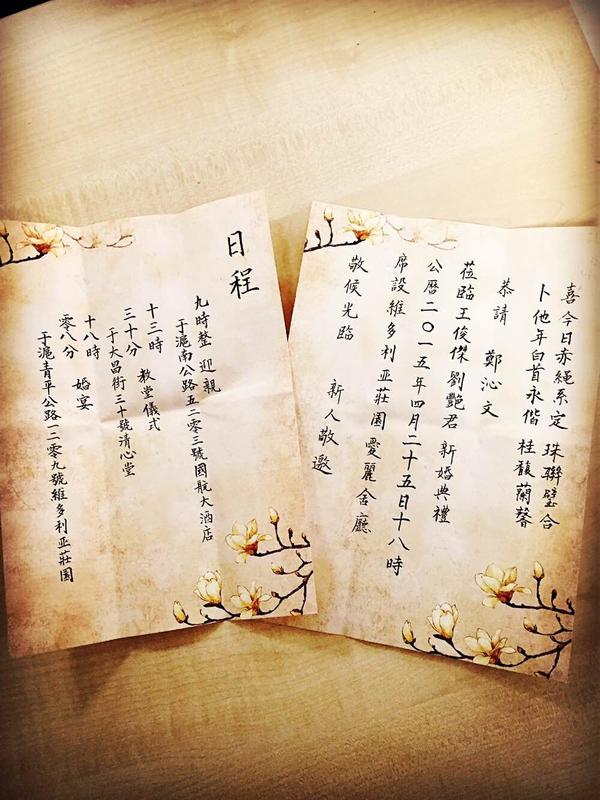 喜今日赤繩系定 珠聯璧合
卜他年白首永偕 桂馥蘭馨
恭請 鄭沁文
莅臨王俊傑劉艷君 新婚典禮
公曆二〇一五年四月二十五日十八時
席設維多利亚莊園愛麗舍廳
敬候光臨 新人敬邀
日程
九時整 迎親
于滬南公路五二零三號國航大酒店
十三時
三十分 教堂儀式
于大昌街三十號清心堂
十八時
零八分 婚宴
于滬青平公路一二零九號維多利亚莊園